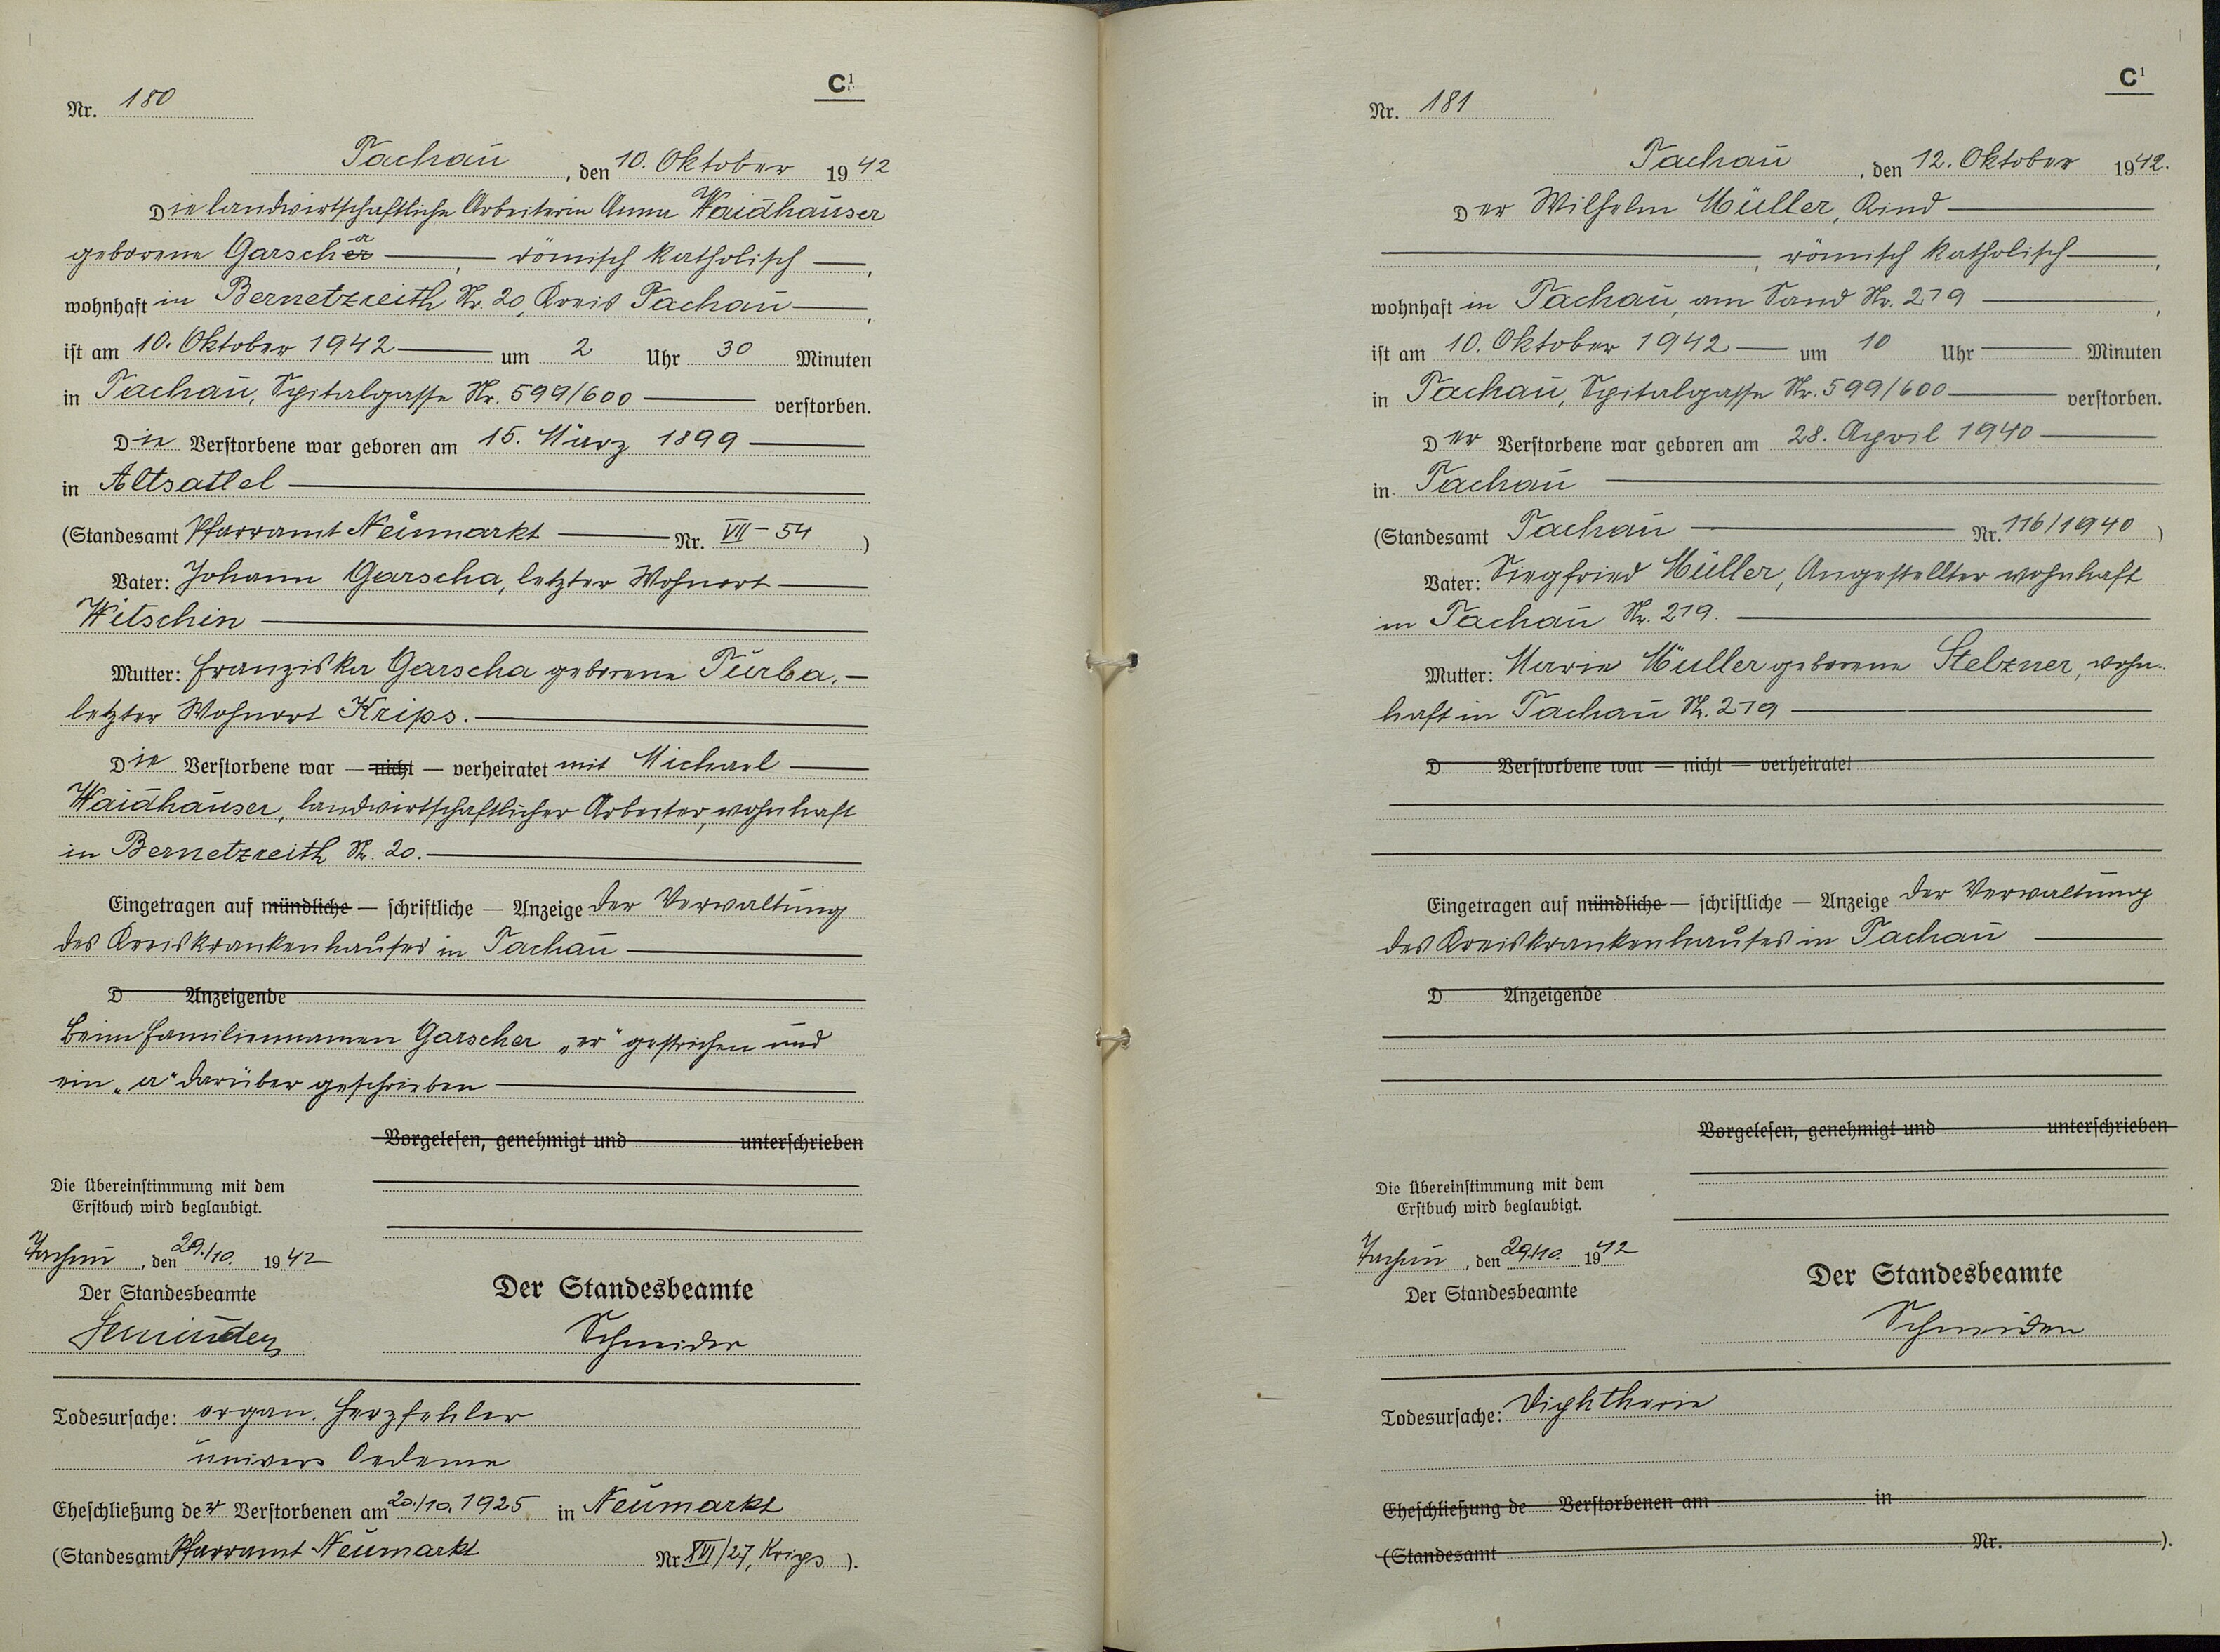 C1
Nr. 180
Tachau, den 10. Oktober 1942
Die landwirtschaftliche Arbeiterin Anna Waidhauser
a
geborene Garscher ———, — römisch katholisch —,
wohnhaft in Bernetzreith Nr. 20, Kreis Tachau ———,
ist am 10. Oktober 1942 ——— um 2 Uhr 30 Minuten
in Tachau, Spitalgasse Nr. 599/600 ——— verstorben.
Die Verstorbene war geboren am 15. März 1899 ———
in Altsattel ———
(Standesamt Pfarramt Neumarkt ——— Nr. VII – 54)
Vater: Johann Garscha, letzter Wohnort ———
Witschin ———
Mutter: Franziska Garscha geborene Turba, —
letzter Wohnort Krips. ———
Die Verstorbene war — nicht — verheiratet mit Michael ———
Waidhauser, landwirtschaftlicher Arbeiter, wohnhaft
in Bernetzreith Nr. 20. ———
Eingetragen auf mündliche — schriftliche — Anzeige der Verwaltung
des Kreiskrankenhauses in Tachau ———
D Anzeigende
Beim Familiennamen Garscher „er“ gestrichen und
ein „a“ darüber geschrieben ———
Vorgelesen, genehmigt und unterschrieben
Die Übereinstimmung mit dem
Erstbuch wird beglaubigt.
Tachau, den 29./10. 1942
Der Standesbeamte
Der Standesbeamte
Schneider
Todesursache: organ. Herzfehler
univers Oedeme
Eheschließung der Verstorbenen am 20./10. 1925 in Neumarkt
(Standesamt Pfarramt Neumarkt Nr. XVI/27, Krips).
C1
Nr. 181
Tachau, den 12. Oktober 1942.
Der Wilhelm Müller, Kind ———
———, römisch katholisch ———,
wohnhaft in Tachau, am Sand Nr. 279 ———,
ist am 10. Oktober 1942 — um 10 Uhr ——— Minuten
in Tachau, Spitalgasse Nr. 599/600 ——— verstorben.
Der Verstorbene war geboren am 28. April 1940 ———
in Tachau ———
(Standesamt Tachau ——— Nr. 116/1940)
Vater: Siegfried Müller, Angestellter wohnhaft
in Tachau Nr. 279. ———
Mutter: Marie Müller geborene Stelzner, wohn-
haft in Tachau Nr. 279 ———
D Verstorbene war — nicht — verheiratet
Eingetragen auf mündliche — schriftliche — Anzeige der Verwaltung
des Kreiskrankenhauses in Tachau ———
D Anzeigende
Vorgelesen, genehmigt und unterschrieben
Die Übereinstimmung mit dem
Erstbuch wird beglaubigt.
Tachau, den 29./10. 1942
Der Standesbeamte
Der Standesbeamte
Schneider
Todesursache: Diphtherie
Eheschließung de Verstorbenen am in
(Standesamt Nr. ).